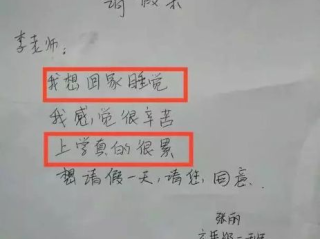 请假条
李老师：
我想回家睡觉
我感觉很辛苦
上学真的很累
想请假一天，请您回意。
张丽